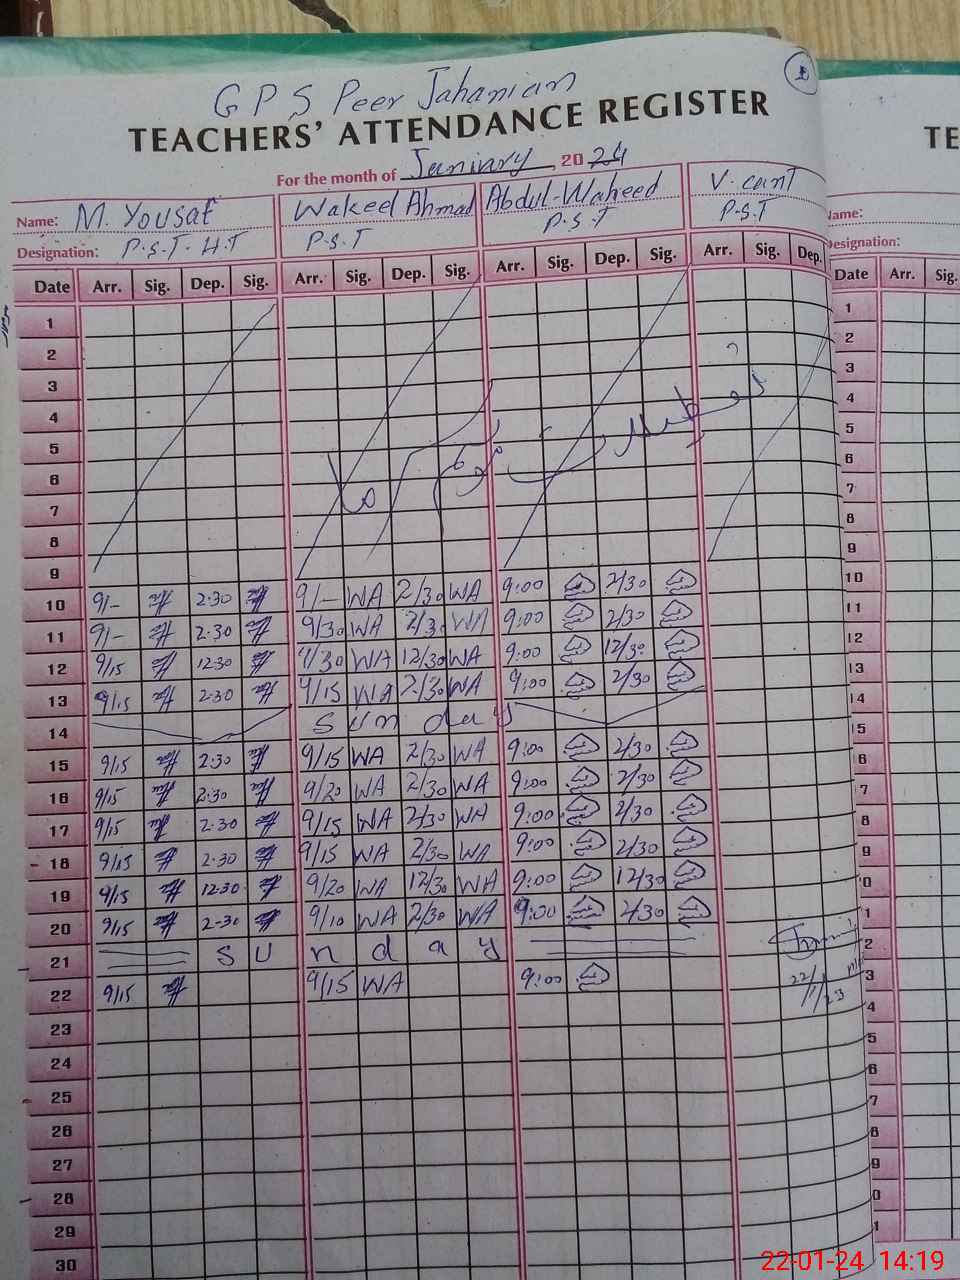 GPS Peer Jahanian
TEACHERS' ATTENDANCE REGISTER
For the month of Janinary 2024
Name: M. Yousaf Wakeel Ahmad Abdul-Waheed V. cant
Designation: P.S.T. H.T P.S.T P.S.T P.S.T
Date Arr. Sig. Dep. Sig. Arr. Sig. Dep. Sig. Arr. Sig. Dep. Sig. Arr. Sig. Dep.
1
2
3
4
5
6
7
8
9
10 9/- 2.30 9/- WA 2/30 WA 9:00 2/30
11 9/- 2.30 9/30 WA 2/30 WA 9:00 2/30
12 9/15 12.30 9/30 WA 12/30 WA 9:00 12/30
13 9/15 2.30 9/15 WA 2/30 WA 9:00 2/30
14 Sunday
15 9/15 2.30 9/15 WA 2/30 WA 9:00 2/30
16 9/15 2.30 9/20 WA 2/30 WA 9:00 2/30
17 9/15 2.30 9/15 WA 2/30 WA 9:00 2/30
18 9/15 2.30 9/15 WA 2/30 WA 9:00 2/30
19 9/15 12.30 9/20 WA 12/30 WA 9:00 12/30
20 9/15 2-30 9/10 WA 2/30 WA 9:00 2/30
21 SUnday
22 9/15 9/15 WA 9:00
23
24
25
26
27
28
29
30
TE
Name:
Designation:
Date Arr. Sig.
1
2
3
4
5
6
7
8
9
10
11
12
13
14
15
6
7
8
9
0
1
2
3
4
5
6
7
8
9
0
1
22-01-24 14:19